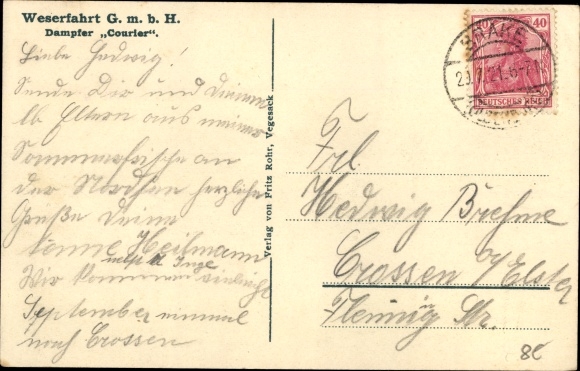 Weserfahrt G. m. b. H.
Dampfer „Courier“.
Liebe Hedwig!
Sende Dir und Deinen
lb Eltern aus meiner
Sommerfrische an
der Nordsee herzliche
Grüße Deine
Heilmann
nebst Inge
Wir kommen vielleicht
September einmal
nach Crossen
Verlag von Fritz Rohr, Vegesack
BRAKE
40
DEUTSCHES REICH
Frl
Hedwig Brehme
Crossen a/Elster
Str.
80